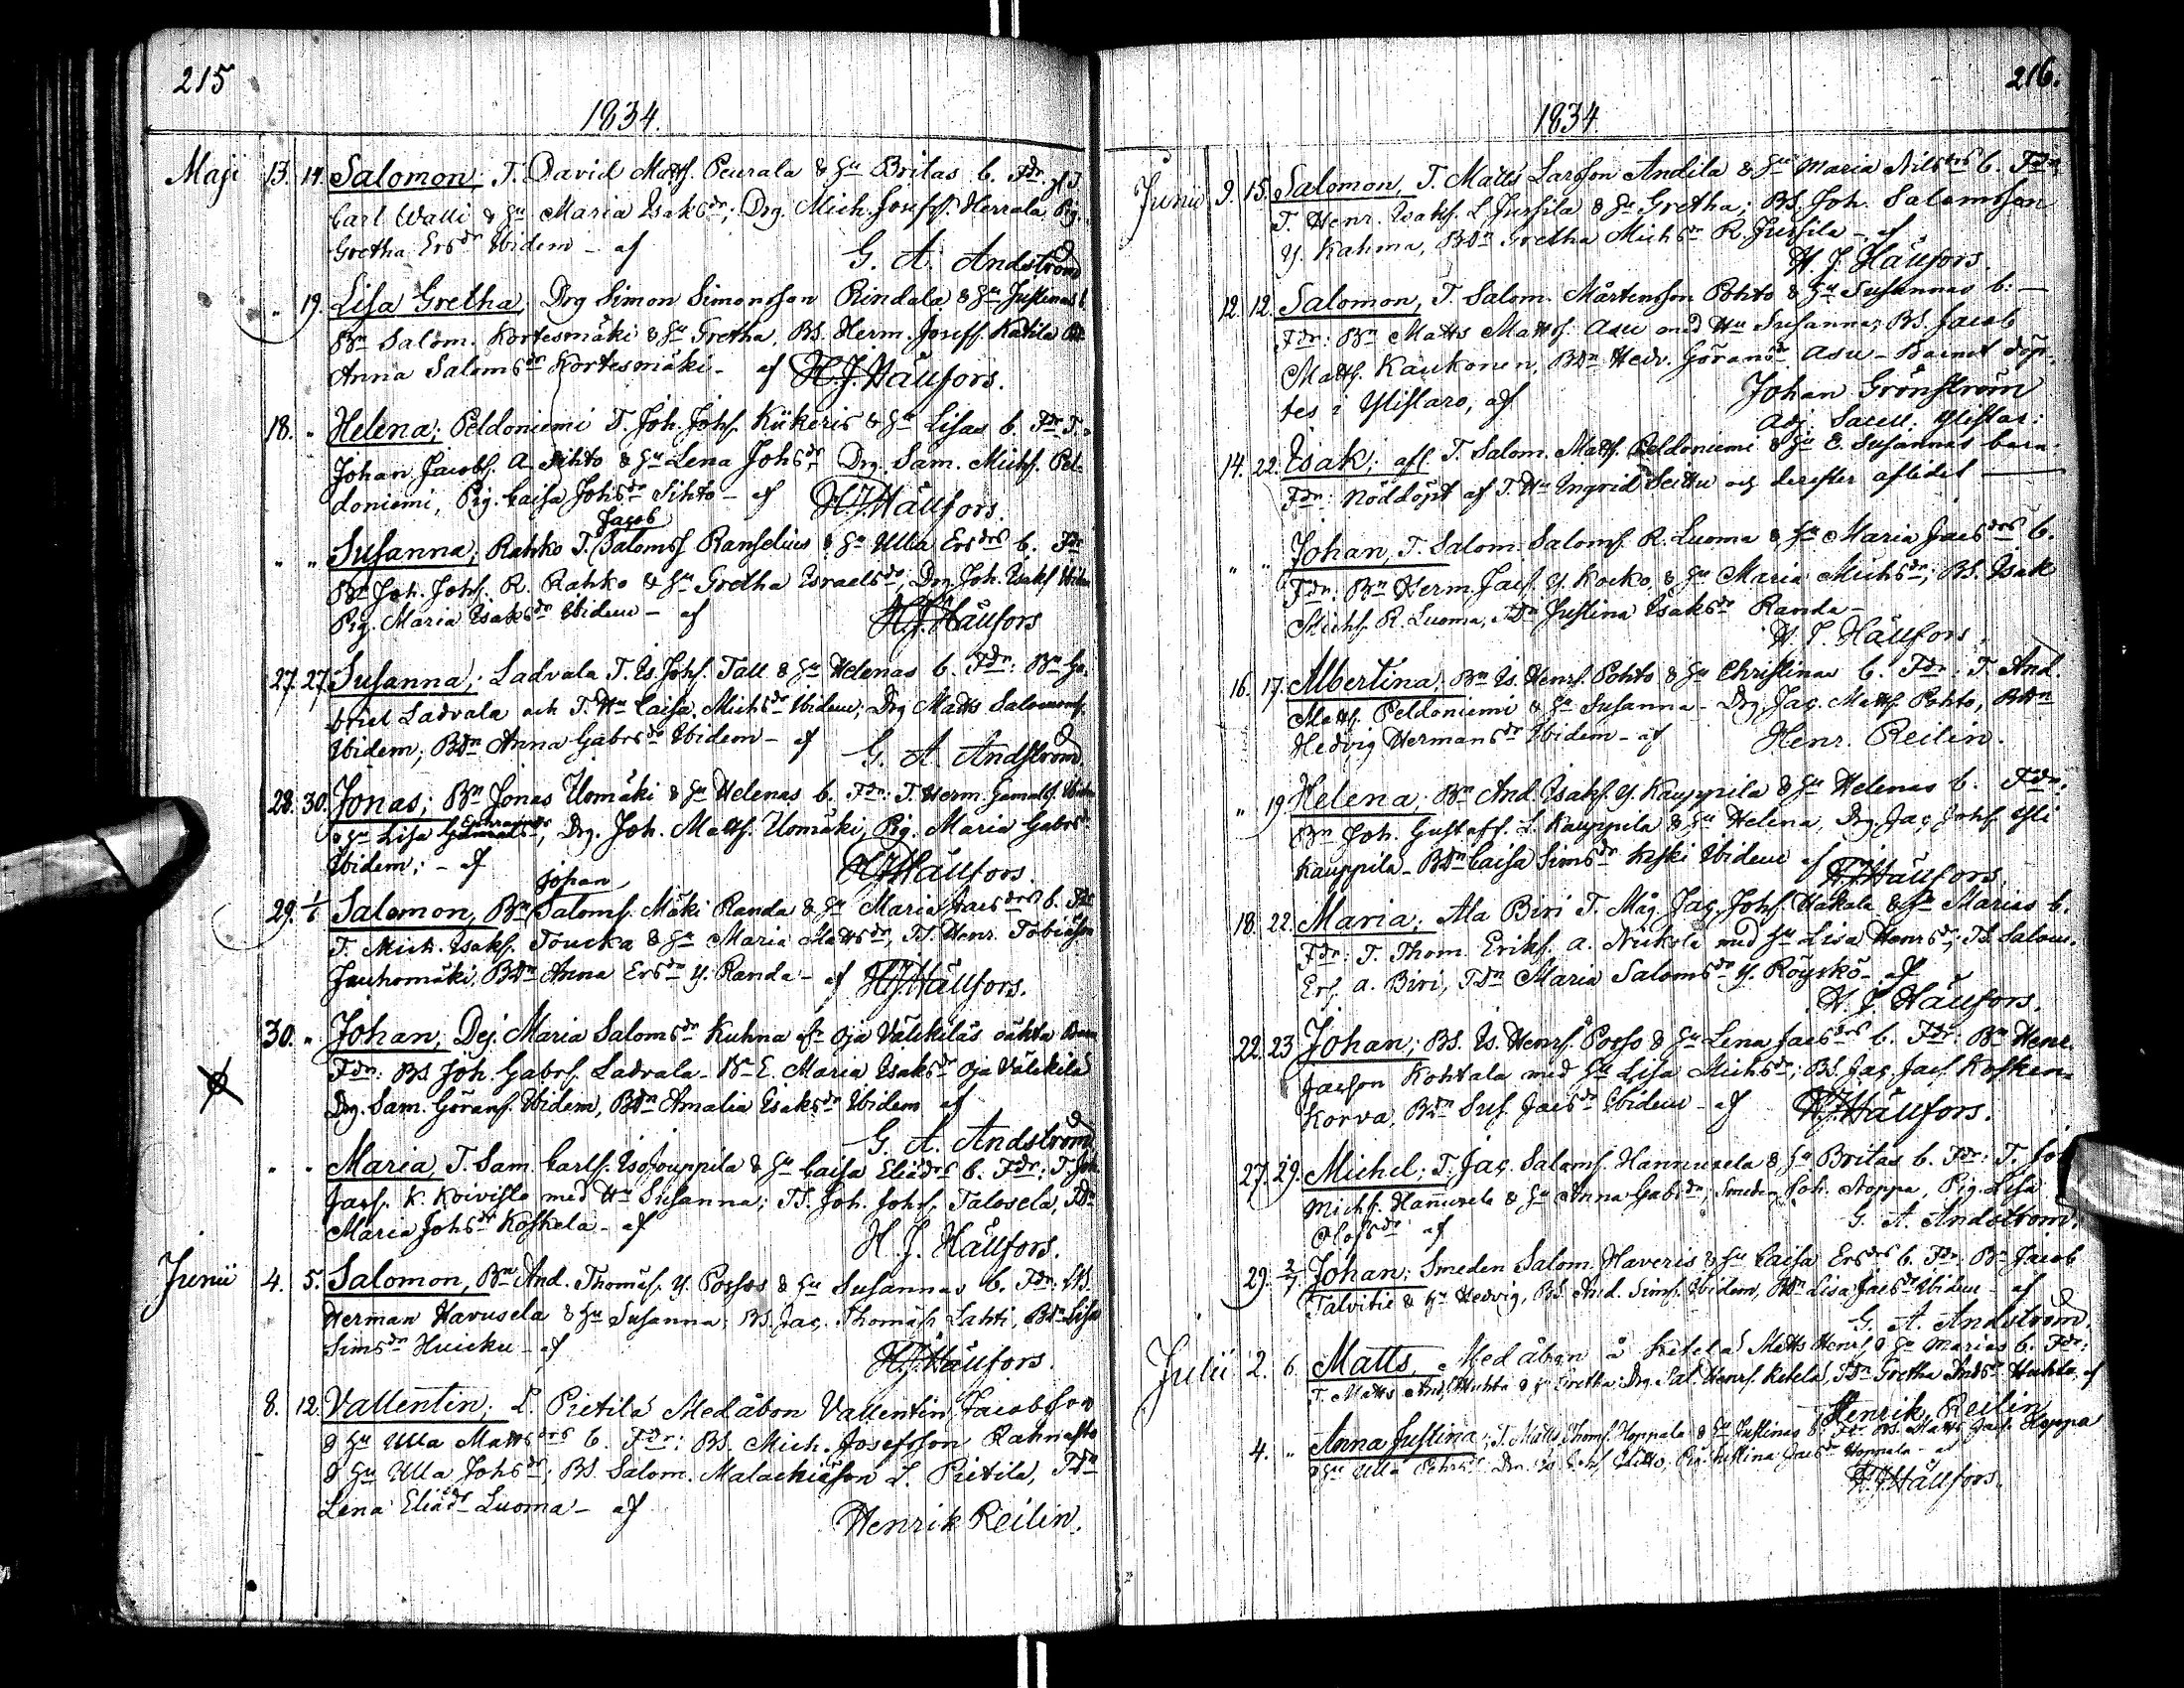 215
1834.
Maji 13. 14. Salomon; T. David Matts. Peurala & Hu Britas b. Fdr. Hl. T.
Carl Walli & Hu Maria Isaksdr; Drg. Mich. Josefss. Herrala, Pig.
Gretha Ersdr Ibidem - af G. A. Andström
" 19. Lisa Gretha, Drg Simon Simonsson Rindala & Hu Justinas b
Bn Salom. Kortesmäki & Hu Gretha, BS. Herm. Joseffs. Katila
Anna Salomsdr Kortesmäki - af H. J. Häufors.
18. " Helena; Peldoniemi T. Joh. Johs. Kükeris & Hu Lisas b. Fdr. T.
Johan Jacobs. A. Sihto & Hu Lena Johsdr; Drg. Sam. Michs. Pel-
doniemi, Pig. Caisa Johsdr Sihto - af H. J. Häufors.
Jacob
" " Susanna; Rahko T. Saloms Ranselius & Hu Ulla Ersdrs b. Fdr
Bn Joh. Johs. R. Rahko & Hu Gretha Israelsdr; Drg. Joh. Isaks Ibidem
Pig. Maria Isaksdr Ibidem - af H. J. Häufors
27. 27. Susanna; Ladvala T. Is. Johs. Tall & Hu Helenas b. Fdr: Bn Ga-
briel Ladvala och T. Hu Caisa Michsdr Ibidem; Drg Matts Salomons.
Ibidem; BDn Anna Gabrsdr Ibidem - af G. A. Andström.
28. 30. Jonas; Bn Jonas Uomäki & Hu Helenas b. Fdr: T. Herm. Gamals. Ibidem
& Hu Lisa Ephraimsdr, Drg. Joh. Matts. Uomäki, Pig. Maria Gabrsdr
Ibidem; - af H. J. Häufors.
Johan
29. 1/6 Salomon, Bn Saloms. Mäki Randa & Hu Maria Jacsdrs b. Fdr
T. Mich. Isaks. Toucka & Hu Maria Mattsdr, TS. Henr. Tobiasson
Jauhomäki, BDn Anna Ersdr Y. Randa - af H. J. Häufors.
30. " Johan, Dej. Maria Salomsdr Kuhna afr Oja Välikiläs oäkta Barn
Fdr: BS. Joh. Gabrs. Ladvala - E. Maria Isaksdr Oja Välikilä
Drg. Sam. Görans. Ibidem, BDn Amalia Isaksdr Ibidem af
G. A. Andström
" " Maria, T. Sam. Carls. Iso Jouppila & Hu Caisa Eliädrs b. Fdr: T. Joh.
Jacs. K. Koivisto med Hu Susanna; TS. Joh. Johs. Talosela, TDn
Maria Johsdr Koskela - af H. J. Häufors.
Junii 4. 5. Salomon, Bn And. Thomas. Y. Porsos & Hu Susannas b. Fdr:
Herman Havusela & Hu Susanna; BS. Jac. Thomas. Lahti, BDn Lisa
Simsdr Huicku - af H. J. Häufors.
8. 12. Vallentin; L. Pietilä Medåbon Vallentin Jacobson
& Hu Ulla Mattsdrs b. Fdr: BS. Mich. Josefsson Rahnasto
& Hu Ulla Johsdr; BS. Salom. Malachiäson L. Pietilä, TDn
Lena Eliädr Luoma - af Henrik Reilin.
216.
1834.
Junii 9. 15. Salomon, T. Matts Larsson Andila & Hu Maria Nilsdrs b. Fdr:
T. Henr. Isaks. L. Jussila & Hu Gretha; BS. Joh. Salomsson
Y. Kahma, BDn Gretha Michsdr R. Jussila - af
H. J. Häufors.
12. 12. Salomon, T. Salom. Mårtensson Pohto & Hu Susannas b: -
Fdr: Bn Matts Matts. Asu med Hu Susanna; BS. Jacob
Matts. Kaukonen, BDn Hedv. Göransdr Asu - Barnet döp-
tes i Ylistaro, af Johan Grönström
Adj. Sacell. Ylistar:
14. 22. Isak; afl. T. Salom. Matts. Peldoniemi & Hu E. Susannas barn
Fdr: Nöddöpt af T. Hu Ingrid Seittu och derefter aflidet
" " Johan, T. Salom. Saloms. R. Luoma & Hu Maria Jacsdrs b.
Fdr: Bn Herm. Jacs. Y. Kocko & Hu Maria Michsdr; BS. Isak
Michs. R. Luoma, TDn Justina Isaksdr Randa -
H. J. Häufors.
16. 17. Albertina; Bn Is. Henrs. Pohto & Hu Christinas b. Fdr: T. And.
Matts. Peldoniemi & Hu Susanna - Drg. Jac. Matts. Pohto, BDn
Hedvig Hermansdr Ibidem - af Henr. Reilin.
" 19. Helena; Bn And. Isaks. Y. Kauppila & Hu Helenas b. Fdr:
Bn Joh. Gustafs. L. Kauppila & Hu Helena, Drg. Jac. Johs. Yli
Kauppila - BDn Caisa Simsdr Keski Ibidem af H. J. Häufors
18. 22. Maria; Ala Biri T. Måg. Jac. Johs. Hakala & Hu Marias b.
Fdr: T. Thom. Eriks. A. Nuksla med Hu Lisa Henrsdr; TS. Salom.
Ers. A. Biri, TDn Maria Salomsdr Y. Röyskö - af
H. J. Häufors.
22. 23 Johan; BS. Is. Henrs. Porsso & Hu Lena Jacsdrs b. Fdr: Bn Henr.
Jacsson Kohtala med Hu Lisa Michsdr; BS. Jac. Jacs. Kosken-
Korva, BDn Sus. Jacsdr Ibidem - af H. J. Häufors.
27. 29. Michel; T. Jac. Saloms. Hannuxela & Hu Britas b. Fdr: T. Joh
Michs. Hanuxela & Hu Anna Gabsdr; Smeden Joh. Stoppa, Pig. Lisa
Olofsdr af G. A. Andström.
29. 2/7. Johan; Smeden Salom. Haveris & Hu Caisa Ersdrs b. Fdr: Bn Jacob
Talvitie & Hu Hedvig, BS. And. Sims. Ibidem, BDn Lisa Jacsdr Ibidem - af
G. A. Andström.
Julii 2. 6 Matts, Medåbon å Ketela Matts Henrs & Hu Marias b. Fdr:
T. Matts Ands. Huhta & Hu Gretha; Drg. Sal. Henrs. Ketelä, TDn Gretha Andsdr Huhta, af
Henrik Reilin
4. " Anna Justina; T. Matts Thoms. Hoppala & Hu Justinas b. Fdr BS. Matts Jacs. Hoppa
& Hu Ulla; Drg. Pig. Justina Jacsdr Hoppala - af
H. J. Häufors.